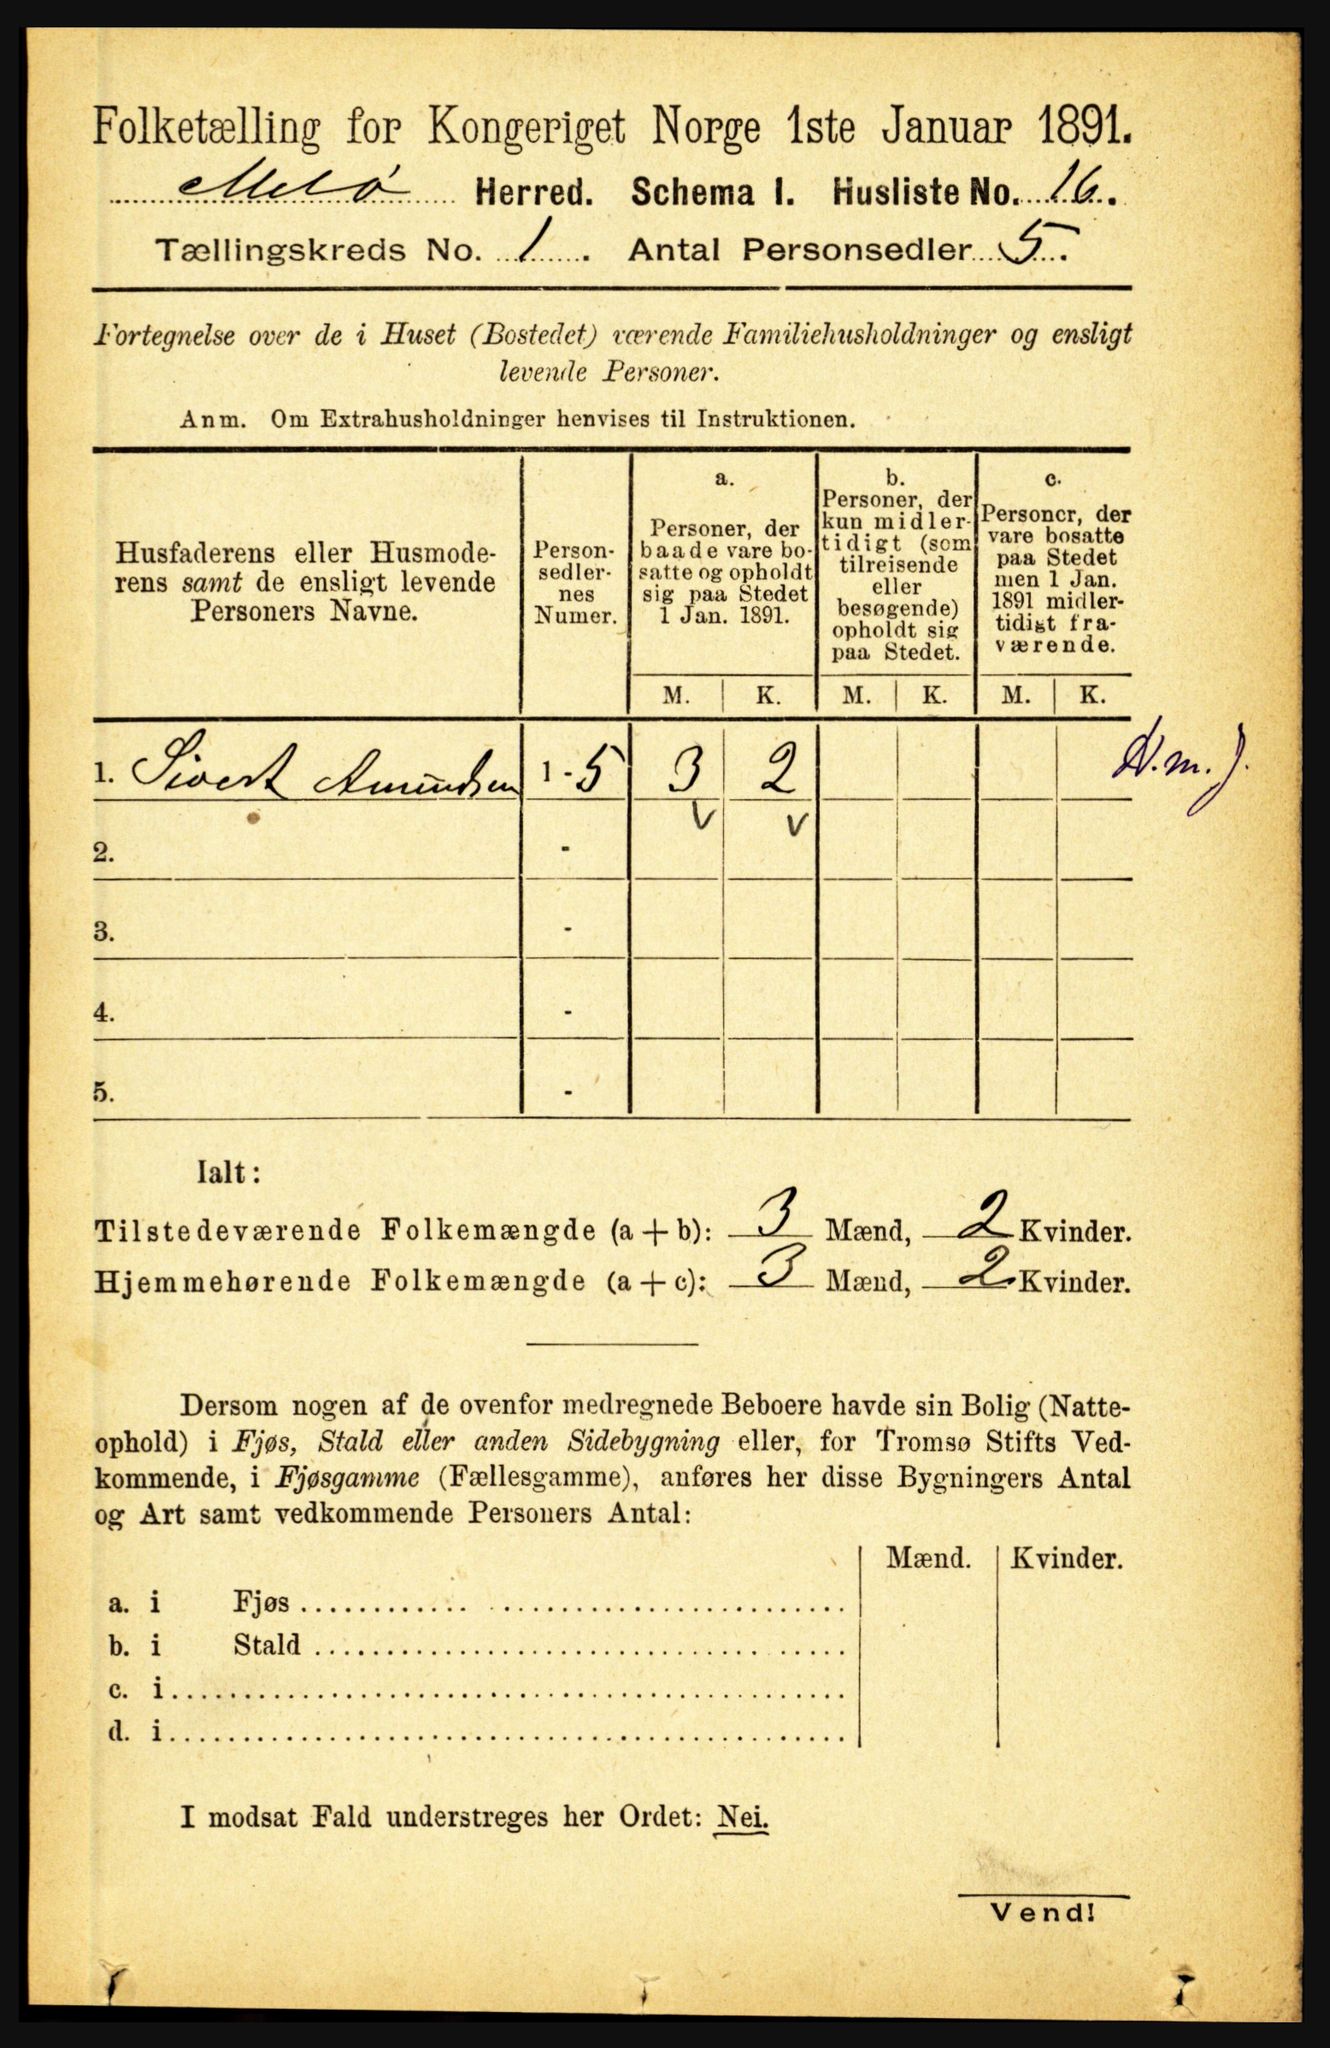 Folketælling for Kongeriget Norge 1ste Januar 1891.
Melø Herred. Schema I. Husliste No. 16.
Tællingskreds No. 1. Antal Personsedler 5.
Fortegnelse over de i Huset (Bostedet) værende Familiehusholdninger og ensligt
levende Personer.
Anm. Om Extrahusholdninger henvises til Instruktionen.
Husfaderens eller Husmode-
rens samt de ensligt levende
Personers Navne.
Person-
sedler-
nes
Numer.
a.
Personer, der
baade vare bo-
satte og opholdt
sig paa Stedet
1 Jan. 1891.
b.
Personer, der
kun midler-
tidigt (som
tilreisende
eller
besøgende)
opholdt sig
paa Stedet.
c.
Personer, der
vare bosatte
paa Stedet
men 1 Jan.
1891 midler-
tidigt fra-
værende.
M. K. M. K. M. K.
1. Sivert Amundsen 1 - 5 3 2
v v
2. -
3. -
4. -
5. -
Ialt:
Tilstedeværende Folkemængde (a + b): 3 Mænd, 2 Kvinder.
Hjemmehørende Folkemængde (a + c): 3 Mænd, 2 Kvinder.
Dersom nogen af de ovenfor medregnede Beboere havde sin Bolig (Natte-
ophold) i Fjøs, Stald eller anden Sidebygning eller, for Tromsø Stifts Ved-
kommende, i Fjøsgamme (Fællesgamme), anføres her disse Bygningers Antal
og Art samt vedkommende Personers Antal:
Mænd. Kvinder.
a. i Fjøs
b. i Stald
c. i
d. i
I modsat Fald understreges her Ordet: Nei.
Vend!